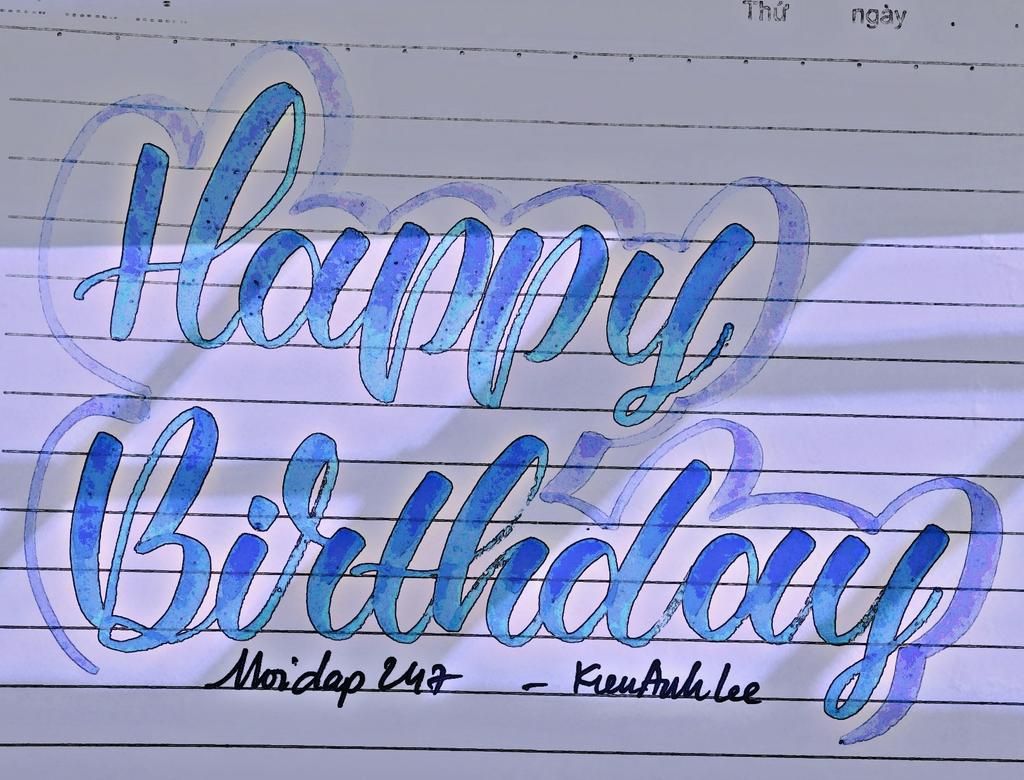 Thứ ngày
Happy
Birthday
Moidap 247 - KieuAnhLee